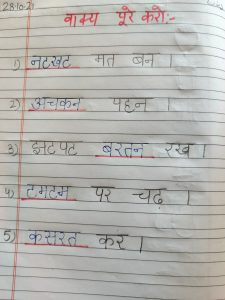 28.10.21
वाक्य पूरे करो:-
1) नटखट मत बन ।
2) अचकन पहन ।
3) झटपट बरतन रख ।
4) टमटम पर चढ़ ।
5) कसरत कर ।